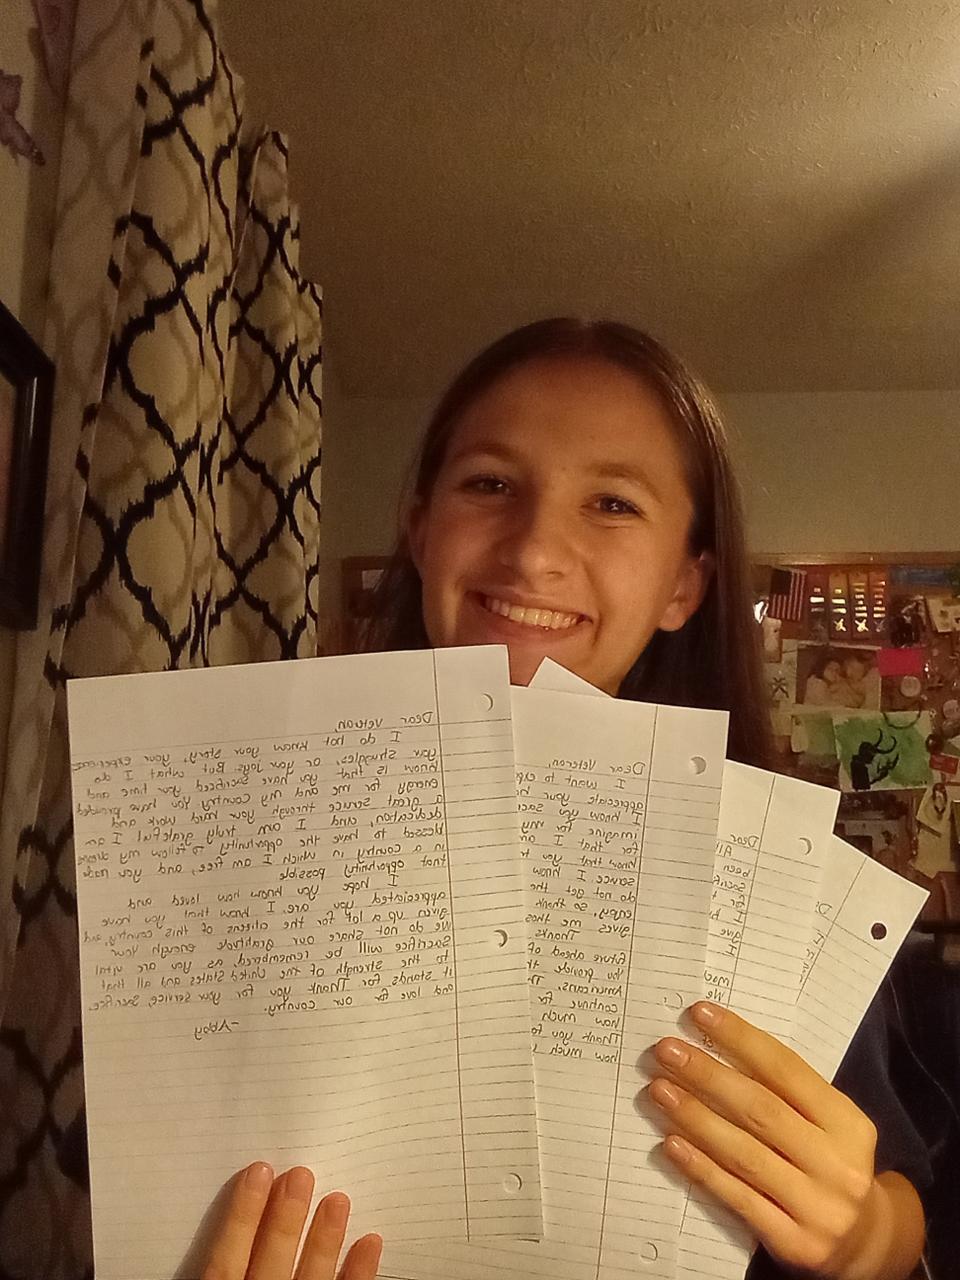 Dear Veteran,
I do not know your story, your experiences
your struggles, or your joys. But what I do
know is that you have sacrificed your time and
energy for me and my country. You have provided
a great service through your hard work and
dedication, and I am truly grateful. I am
blessed to have the opportunity to follow my dreams
in a country in which I am free, and you made
that opportunity possible
I hope you know how loved and
appreciated you are. I know that you have
given up a lot for the citizens of this country, and
we do not share our gratitude enough. Your
sacrifice will be remembered as you are vital
to the strength of the United States and all that
it stands for. Thank you for your service, sacrifice,
and love for our country.
-Abby
Dear Veteran,
I want to exp
appreciate your
I know you
imagine for my
for that I am
know that you
service. I know
do not get the
enough, so thank
gives me this
Thanks
future ahead of
you provide
Americans.
continue for
how much
Thank you fo
how much
Dear
All
been
sacrif
for
I
give
I
We